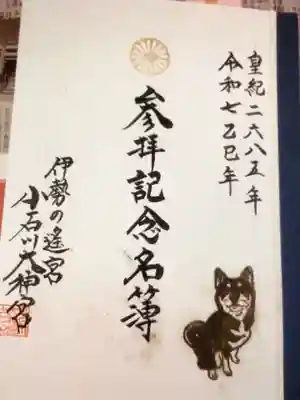 皇紀二六八五年
令和七乙巳年
参拝記念名簿
伊勢の遥宮
小石川大神宮